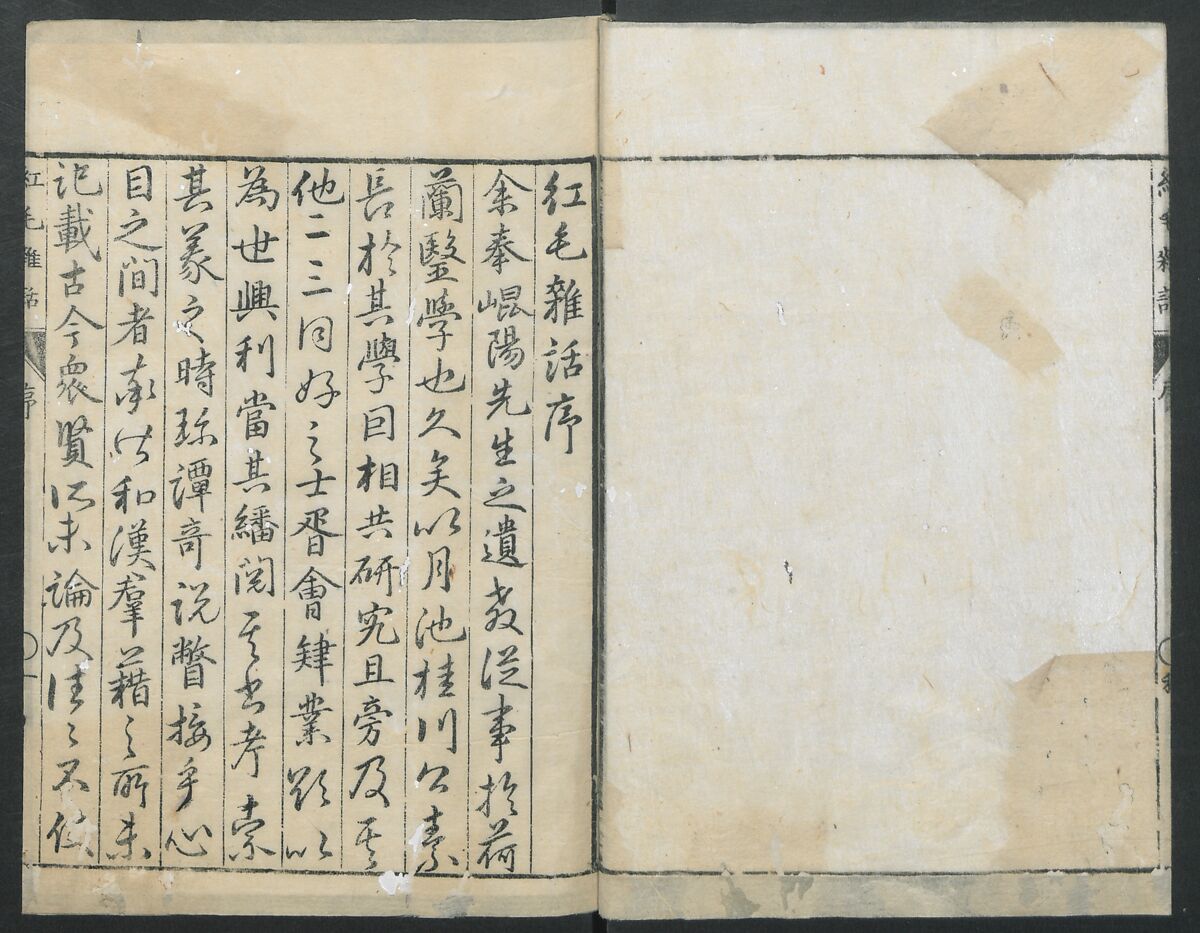 紅毛雜話序
余奉崐陽先生之遺教從事於荷
蘭醫學也久矣以月池桂川公素
長於其學因相共研究且旁及其
他二三同好之士胥會肄業欲以
為世興利當其繙閱其書考索
其義之時珎譚奇説瞥接乎心
目之間者率皆和漢羣籍之所未
記載古今衆賢所未論及往々不
紅毛雜話
序